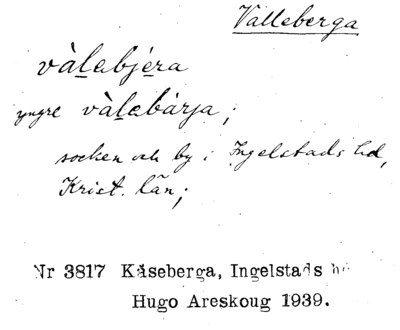 Valleberga
vàlebjéra
yngre vàlebàrja;
socken och by i Ingelstads hd,
Krist. län;
Nr 3817 Kåseberga, Ingelstads
Hugo Areskoug 1939.